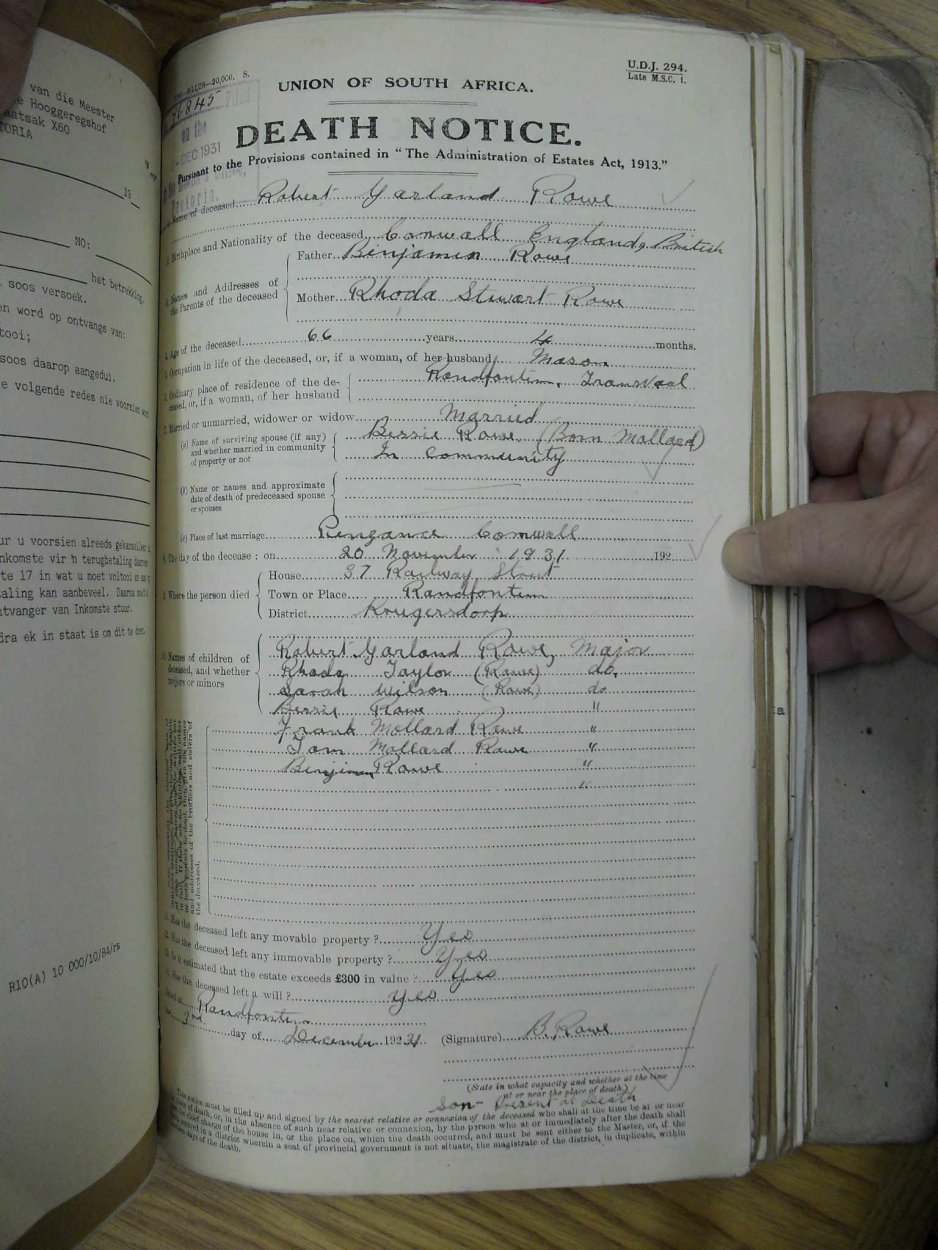 van die Meester
Hooggeregshof
X60
19
NO:
het betrekking,
soos versoek.
en word op ontvangs van:
tooi;
soos daarop aangedui.
e volgende redes nie voorsien
ur u voorsien alreeds gekanselleer
nkomste vir 'n terugbetaling
te 17 in wat u moet voltooi en
aling kan aanbeveel. Daarna
ntvanger van Inkomste stuur.
ôra ek in staat is om dit te doen.
R10(A) 10 000/10/84/rs
U.D.J. 294.
Late M.S.C. 1.
S.
76845
UNION OF SOUTH AFRICA.
DEATH NOTICE.
DEC 1931
Pursuant to the Provisions contained in "The Administration of Estates Act, 1913."
Pretoria.
Name of deceased Robert Garland Rowe
2. Birthplace and Nationality of the deceased Cornwall England, British
3. Names and Addresses of the Parents of the deceased
Father Benjamin Rowe
Mother Rhoda Stewart Rowe
4. Age of the deceased 66 years 4 months.
5. Occupation in life of the deceased, or, if a woman, of her husband Mason
6. Ordinary place of residence of the deceased, or, if a woman, of her husband Randfontein, Transvaal
7. Married or unmarried, widower or widow Married
(a) Name of surviving spouse (if any) and whether married in community of property or not
Bessie Rowe (Born Mollard)
In Community
(b) Name or names and approximate date of death of predeceased spouse or spouses
(c) Place of last marriage Penzance Cornwall
8. The day of the decease: on 20 November 1931. 192
9. Where the person died
House 37 Railway Street
Town or Place Randfontein
District Krugersdorp
10. Names of children of deceased, and whether majors or minors
Robert Garland Rowe, Major
Rhoda Taylor (Rowe) do.
Sarah Wilson (Rowe) do
Bessie Rowe "
Frank Mollard Rowe "
Tom Mollard Rowe "
Benjiman Rowe "
"
and addresses of the brothers and sisters of
the deceased.
11. Has the deceased left any movable property? Yes
12. Has the deceased left any immovable property? Yes
13. Is it estimated that the estate exceeds £300 in value? Yes
14. Has the deceased left a will? Yes
Dated at Randfontein
the 3rd day of December 1931 (Signature) B. Rowe
(State in what capacity and whether at the time
at or near the place of death)
Son - Present at Death
This notice must be filled up and signed by the nearest relative or connexion of the deceased who shall at the time be at or near
the place of death, or, in the absence of such near relative or connexion, by the person who at or immediately after the death shall
have the chief charge of the house in, or the place on, which the death occurred, and must be sent either to the Master, or, if the
death occurred in a district wherein a seat of provincial government is not situate, the magistrate of the district, in duplicate, within
days of the death.